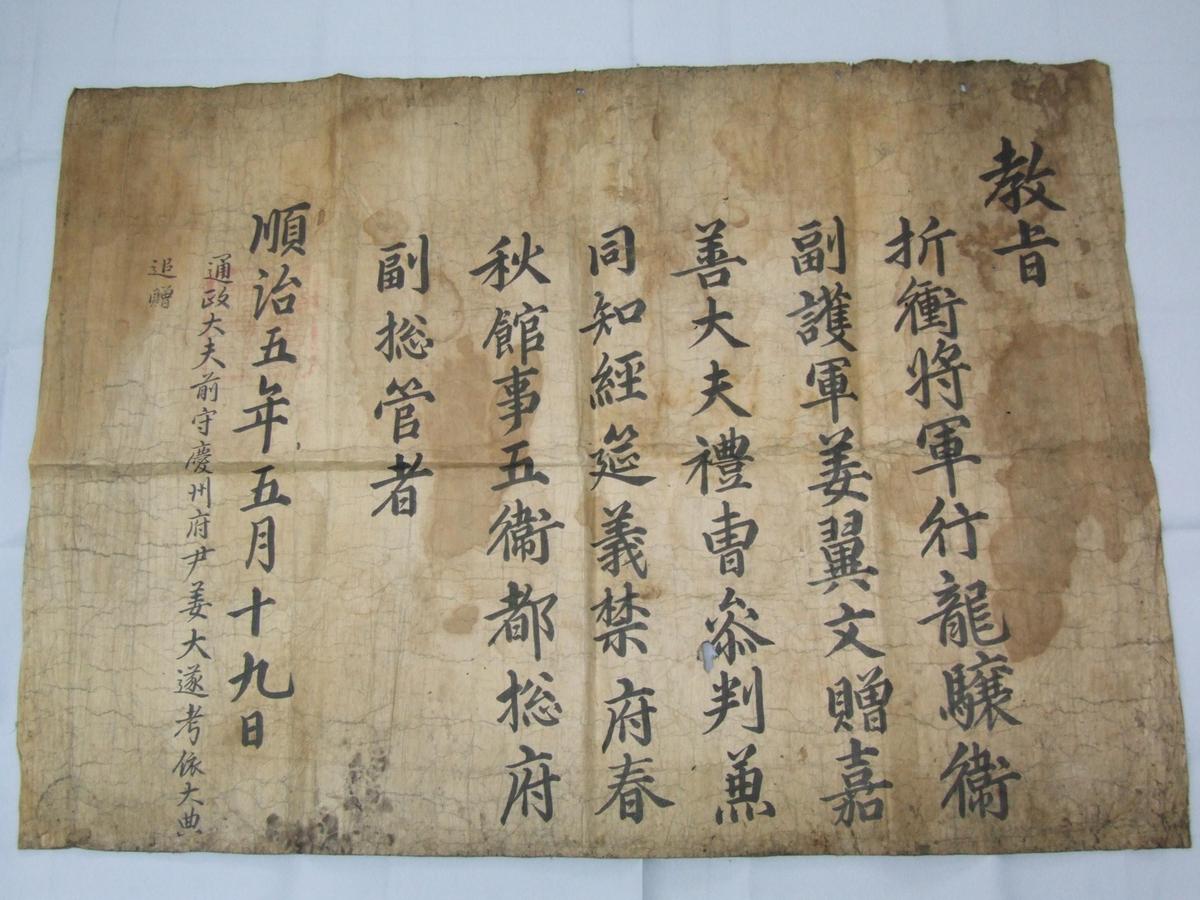 教旨
折衝將軍行龍驤衛
副護軍姜翼文贈嘉
善大夫禮曹叅判兼
同知經筵義禁府春
秋館事五衛都総府
副総管者
順治五年五月十九日
通政大夫前守慶州府尹姜大遂考依大典
追贈